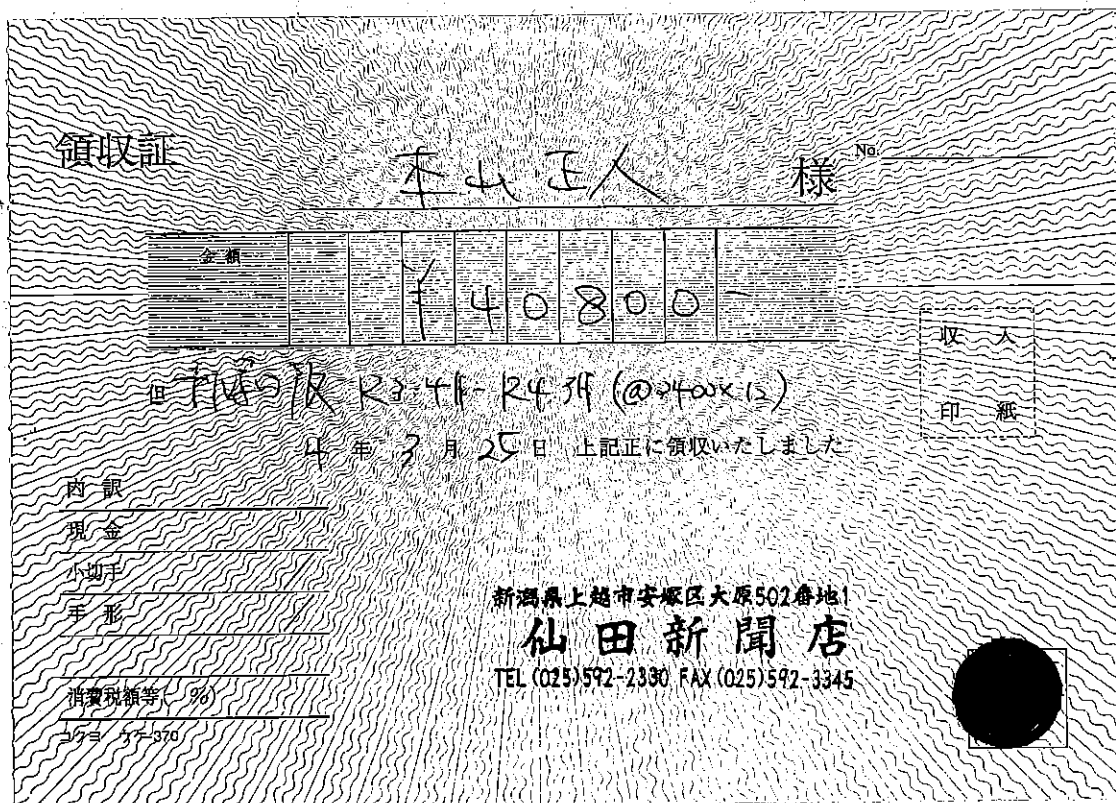 領収証
本山正人 様 No.
金額 ¥40800-
但 R3.4月-R4.3月 (@3400×12)
4年3月25日 上記正に領収いたしました
収入
印紙
内訳
現金
小切手
手形
消費税額等( %)
コクヨ ウケ-370
新潟県上越市安塚区大原502番地1
仙田新聞店
TEL (025)592-2330 FAX (025)592-3345